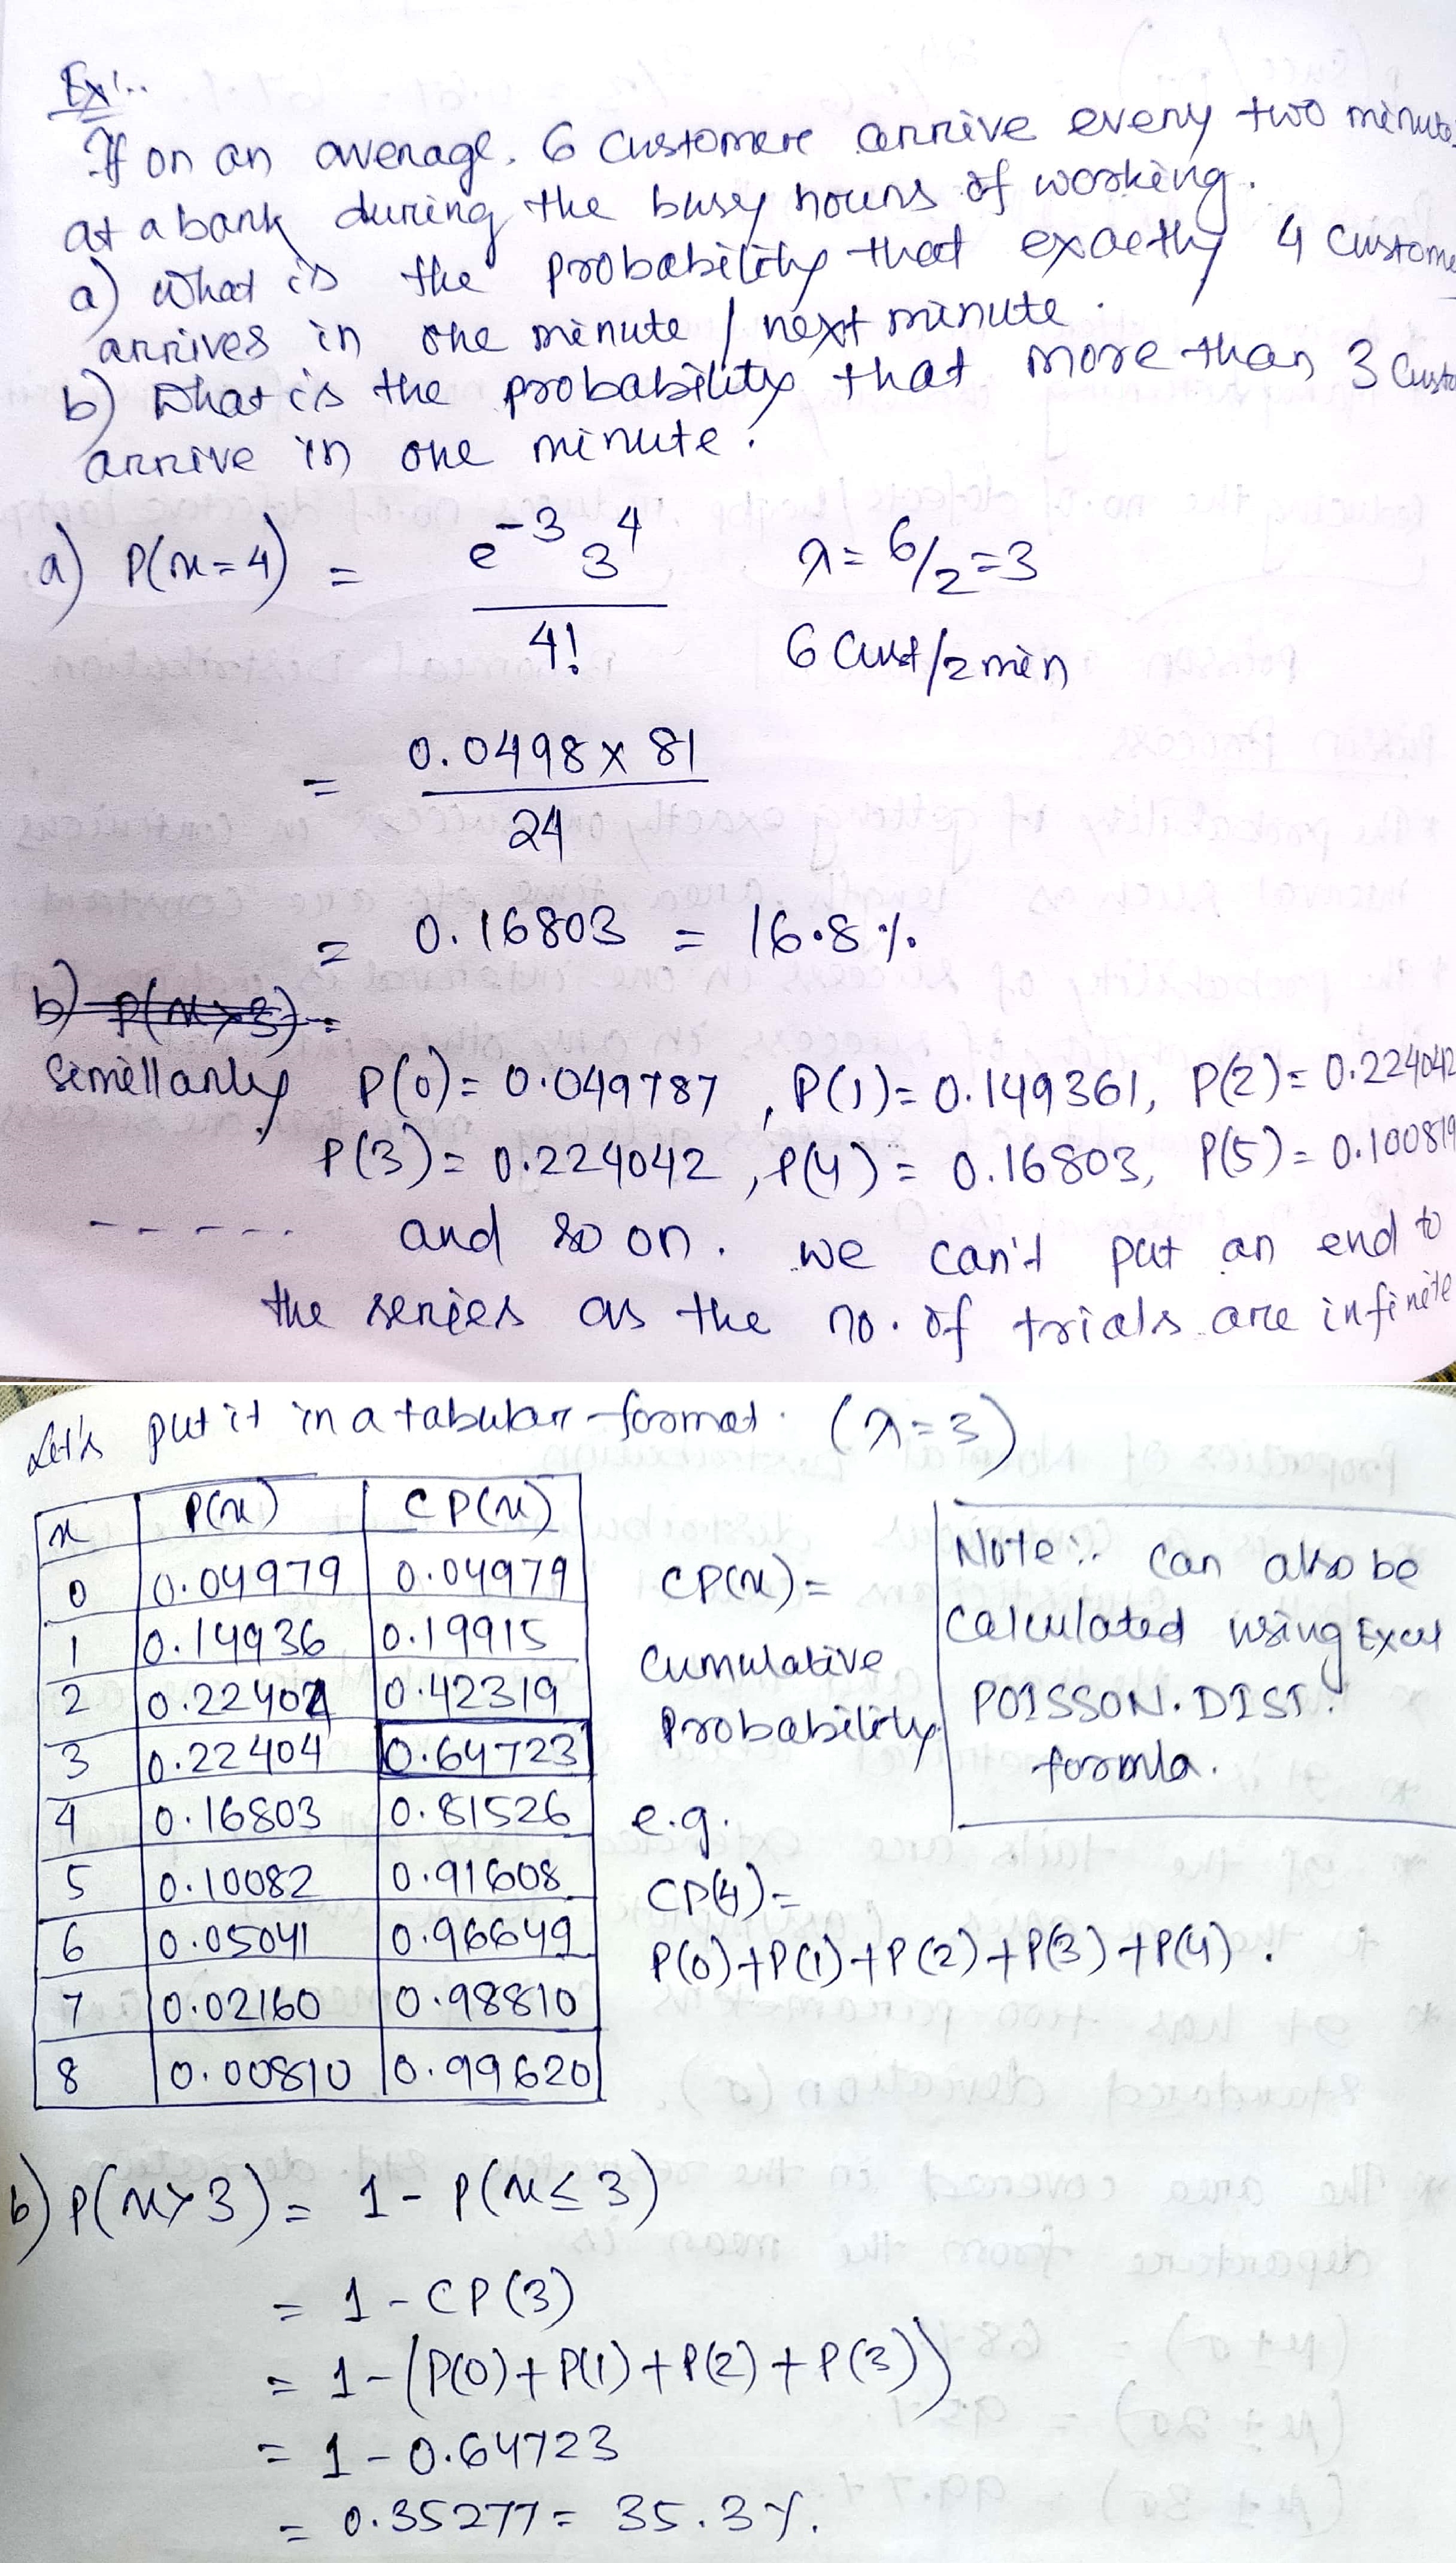 Ex:-
If on an average, 6 customers arrive every two minutes
at a bank during the busy hours of working.
a) What is the probability that exactly 4 custome
arrives in one minute / next minute.
b) What is the probability that more than 3 custo
arrive in one minute.
a) P(x=4) = e^-3 3^4 / 4!
λ = 6/2 = 3
6 Cust/2 min
= 0.0498 x 81 / 24
= 0.16803 = 16.8%
b) P(x>3) =
Simillarly P(0) = 0.049787, P(1) = 0.149361, P(2) = 0.224042
P(3) = 0.224042, P(4) = 0.16803, P(5) = 0.100819
- - - - - and so on. we can't put an end to
the series as the no. of trials are infinite
Let's put it in a tabular format. (λ=3)
x P(x) CP(x)
0 0.04979 0.04979
1 0.14936 0.19915
2 0.22404 0.42319
3 0.22404 0.64723
4 0.16803 0.81526
5 0.10082 0.91608
6 0.05041 0.96649
7 0.02160 0.98810
8 0.00810 0.99620
CP(x) =
Cumulative
Probability
e.g.
CP(4) =
P(0)+P(1)+P(2)+P(3)+P(4).
Note:- Can also be
Calculated using Excel
POISSON.DIST.
formla.
b) P(x>3) = 1 - P(x≤3)
= 1 - CP(3)
= 1 - (P(0)+P(1)+P(2)+P(3))
= 1 - 0.64723
= 0.35277 = 35.3%.